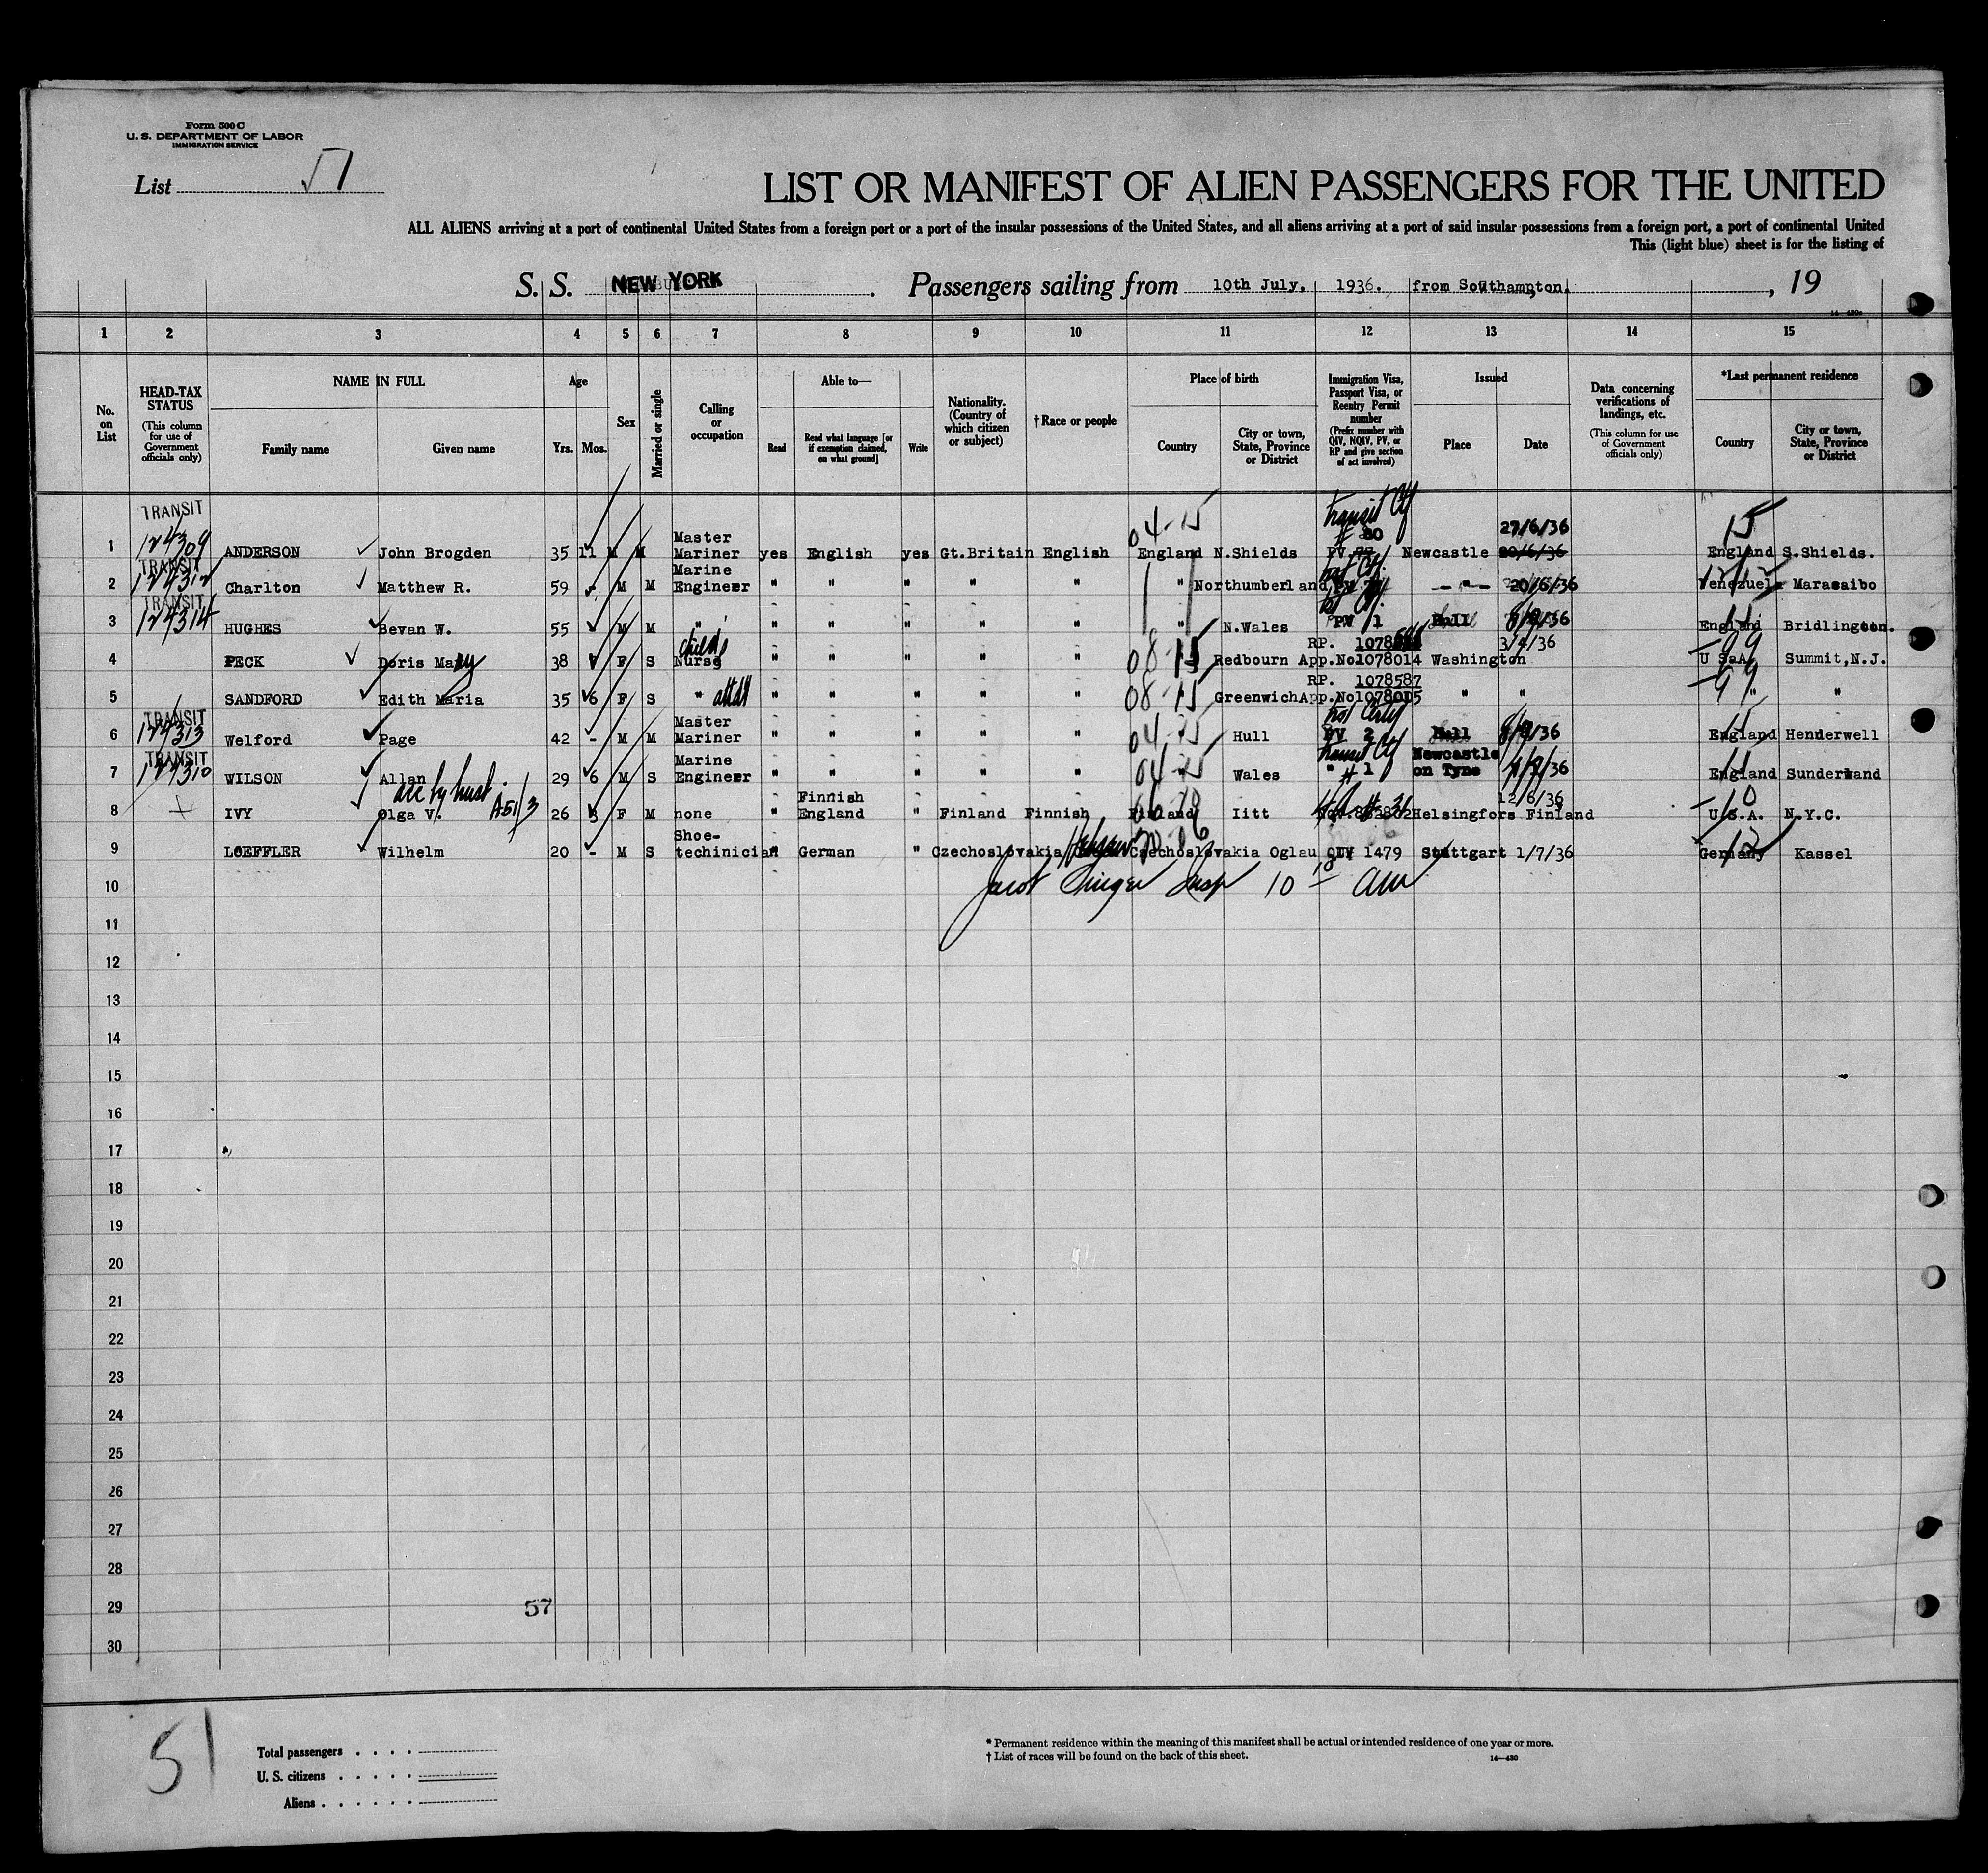 Form 500 C
U. S. DEPARTMENT OF LABOR
IMMIGRATION SERVICE
List 51
LIST OR MANIFEST OF ALIEN PASSENGERS FOR THE UNITED
ALL ALIENS arriving at a port of continental United States from a foreign port or a port of the insular possessions of the United States, and all aliens arriving at a port of said insular possessions from a foreign port, a port of continental United
This (light blue) sheet is for the listing of
S. S. NEW YORK. Passengers sailing from 10th July, 1936. from Southampton. , 19
1 2 3 4 5 6 7 8 9 10 11 12 13 14 15
No. on List
HEAD-TAX STATUS
(This column for use of Government officials only)
NAME IN FULL
Family name Given name
Age
Yrs. Mos.
Sex
Married or single
Calling or occupation
Able to—
Read
Read what language [or if exemption claimed, on what ground]
Write
Nationality. (Country of which citizen or subject)
† Race or people
Place of birth
Country
City or town, State, Province or District
Immigration Visa, Passport Visa, or Reentry Permit number
(Prefix number with QIV, NQIV, PV, or RP and give section of act involved)
Issued
Place Date
Data concerning verifications of landings, etc.
(This column for use of Government officials only)
*Last permanent residence
Country
City or town, State, Province or District
TRANSIT 124309 04-15 Transit Ctf # 80 27/6/36 15
1 ANDERSON John Brogden 35 11 M M Master Mariner yes English yes Gt.Britain English England N.Shields PV 77 Newcastle 20/6/36 England S.Shields.
TRANSIT 124312
2 Charlton Matthew R. 59 - M M Marine Engineer " " " " " " Northumberland PV - " - 20/6/36 Venezuela Maracaibo
TRANSIT 124314
3 HUGHES Bevan W. 55 - M M " " " " " " " N.Wales PV 1 Hull /36 England Bridlington.
child's 08-15 RP. 3/4/36 99
4 PECK Doris Mary 38 F S Nurse " " " " " Redbourn App.No1078014 Washington U S A Summit,N.J.
08-15 RP. 1078587 99
5 SANDFORD Edith Maria 35 6 F S " " " " " " Greenwich App.No1078015 " " " "
TRANSIT 124313 04-15
6 Welford Page 42 - M M Master Mariner " " " " " Hull PV 2 Hull /36 England Henderwell
TRANSIT 124310 04-15 Transit Ctf
7 WILSON Allan 29 6 M S Marine Engineer " " " " " " Wales " # 1 Newcastle on Tyne /36 England Sunderland
acc by husb. A51/3 12/6/36
8 IVY Olga V. 26 3 F M none " Finnish England " Finland Finnish Finland Iitt Helsingfors Finland U.S.A. N.Y.C.
9 LOEFFLER Wilhelm 20 - M S Shoe-techinician " German " Czechoslovakia Czechoslovakia Oglau 1479 Stuttgart 1/7/36 Germany Kassel
10 Jacob Singer Insp 10 10 AM
11
12
13
14
15
16
17
18
19
20
21
22
23
24
25
26
27
28
29 57
30
51
Total passengers . . . .
U. S. citizens . . . . .
Aliens . . . . . .
* Permanent residence within the meaning of this manifest shall be actual or intended residence of one year or more.
† List of races will be found on the back of this sheet. 14—430